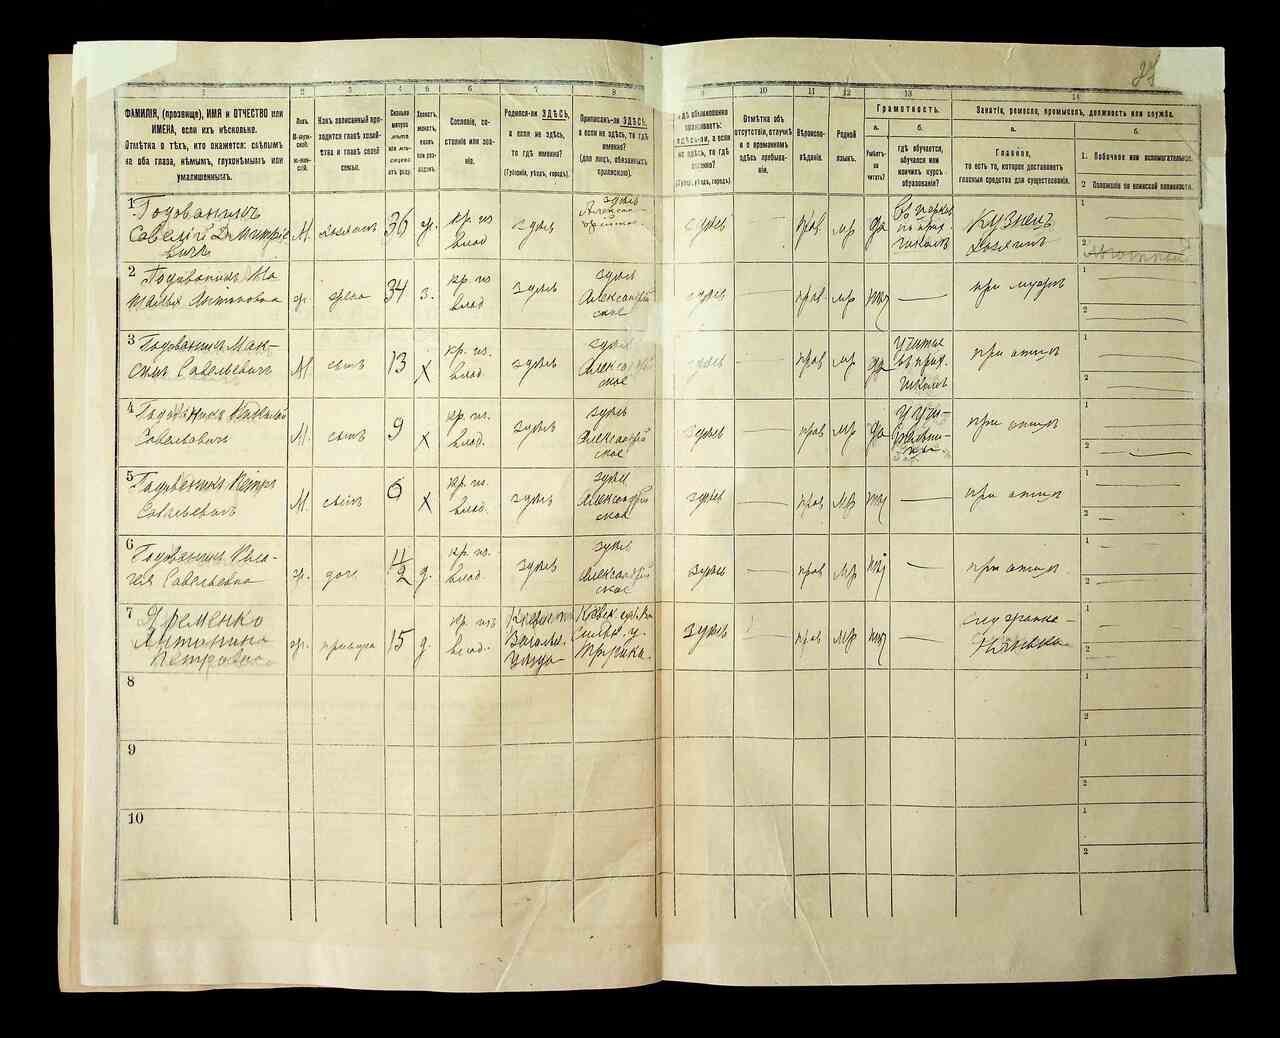 27
1 2 3 4 5 6 7 8 9 10 11 12 13 14
ФАМИЛІЯ, (прозвище), ИМЯ и ОТЧЕСТВО или
ИМЕНА, если ихъ нѣсколько.
Отмѣтка о тѣхъ, кто окажется: слѣпымъ
на оба глаза, нѣмымъ, глухонѣмымъ или
умалишеннымъ.
Полъ.
М-муж-
ской.
Ж-жен-
скій.
Какъ записанный при-
ходится главѣ хозяй-
ства и главѣ своей
семьи.
Сколько
минуло
лѣтъ
или мѣ-
сяцевъ
отъ роду.
Холостъ,
женатъ,
вдовъ
или раз-
веденъ.
Сословіе, со-
стояніе или зва-
ніе.
Родился-ли ЗДѢСЬ,
а если не здѣсь,
то гдѣ именно?
(Губернія, уѣздъ, городъ).
Приписанъ-ли ЗДѢСЬ,
а если не здѣсь, то гдѣ
именно?
(для лицъ, обязанныхъ
припискою).
Гдѣ обыкновенно
проживаетъ:
здѣсь-ли, а если
не здѣсь, то гдѣ
именно?
(Губерн., уѣздъ, городъ).
Отмѣтка объ
отсутствіи, отлучкѣ
и о временномъ
здѣсь пребыва-
ніи.
Вѣроиспо-
вѣданіе.
Родной
языкъ.
Грамотность.
а.
Умѣетъ-
ли
читать?
б.
гдѣ обучается,
обучался или
кончилъ курсъ
образованія?
Занятіе, ремесло, промыселъ, должность или служба.
а.
Главное,
то есть то, которое доставляетъ
главныя средства для существованія.
б.
1. Побочное или вспомогательное.
2 Положеніе по воинской повинности.
1 Годованикъ
Савелій Дмитріе
вичъ
М. хозяинъ 36 ж. кр. из
влад здѣсь здѣсь
здѣсь прав мр да
школѣ кузнецъ
хозяинъ
1
2
2 Годованикъ На
талья Антоновна
ж. жена 34 з. кр. из
влад здѣсь здѣсь
Александрій
ское
здѣсь прав мр нѣт при мужѣ
1
2
3 Годованикъ Мак-
симъ Савельевичъ
М. сынъ 13 х кр. из.
влад. здѣсь здѣсь
Александрій
ское
здѣсь прав мр да
въ прих.
школѣ при отцѣ
1
2
4 Годованикъ
Савельевичъ
М. сынъ 9 х кр. из.
влад. здѣсь здѣсь
Александрій
ское
здѣсь прав мр да при отцѣ
1
2
5 Годованикъ Петръ
Савельевичъ
М. сынъ 6 х кр. из.
влад. здѣсь здѣсь
Александрій
ское
здѣсь прав мр нѣт при отцѣ
1
2
6 Годованикъ Пела-
гея Савельевна
ж. доч. д. кр. из.
влад. здѣсь здѣсь
Александрій
ское
здѣсь прав мр нѣт при отцѣ
1
2
7 Яременко
Антонина
Петровна
ж. 15 д. кр. изъ
влад.
здѣсь прав мр нѣт
нянька
1
2
8
1
2
9
1
2
10
1
2